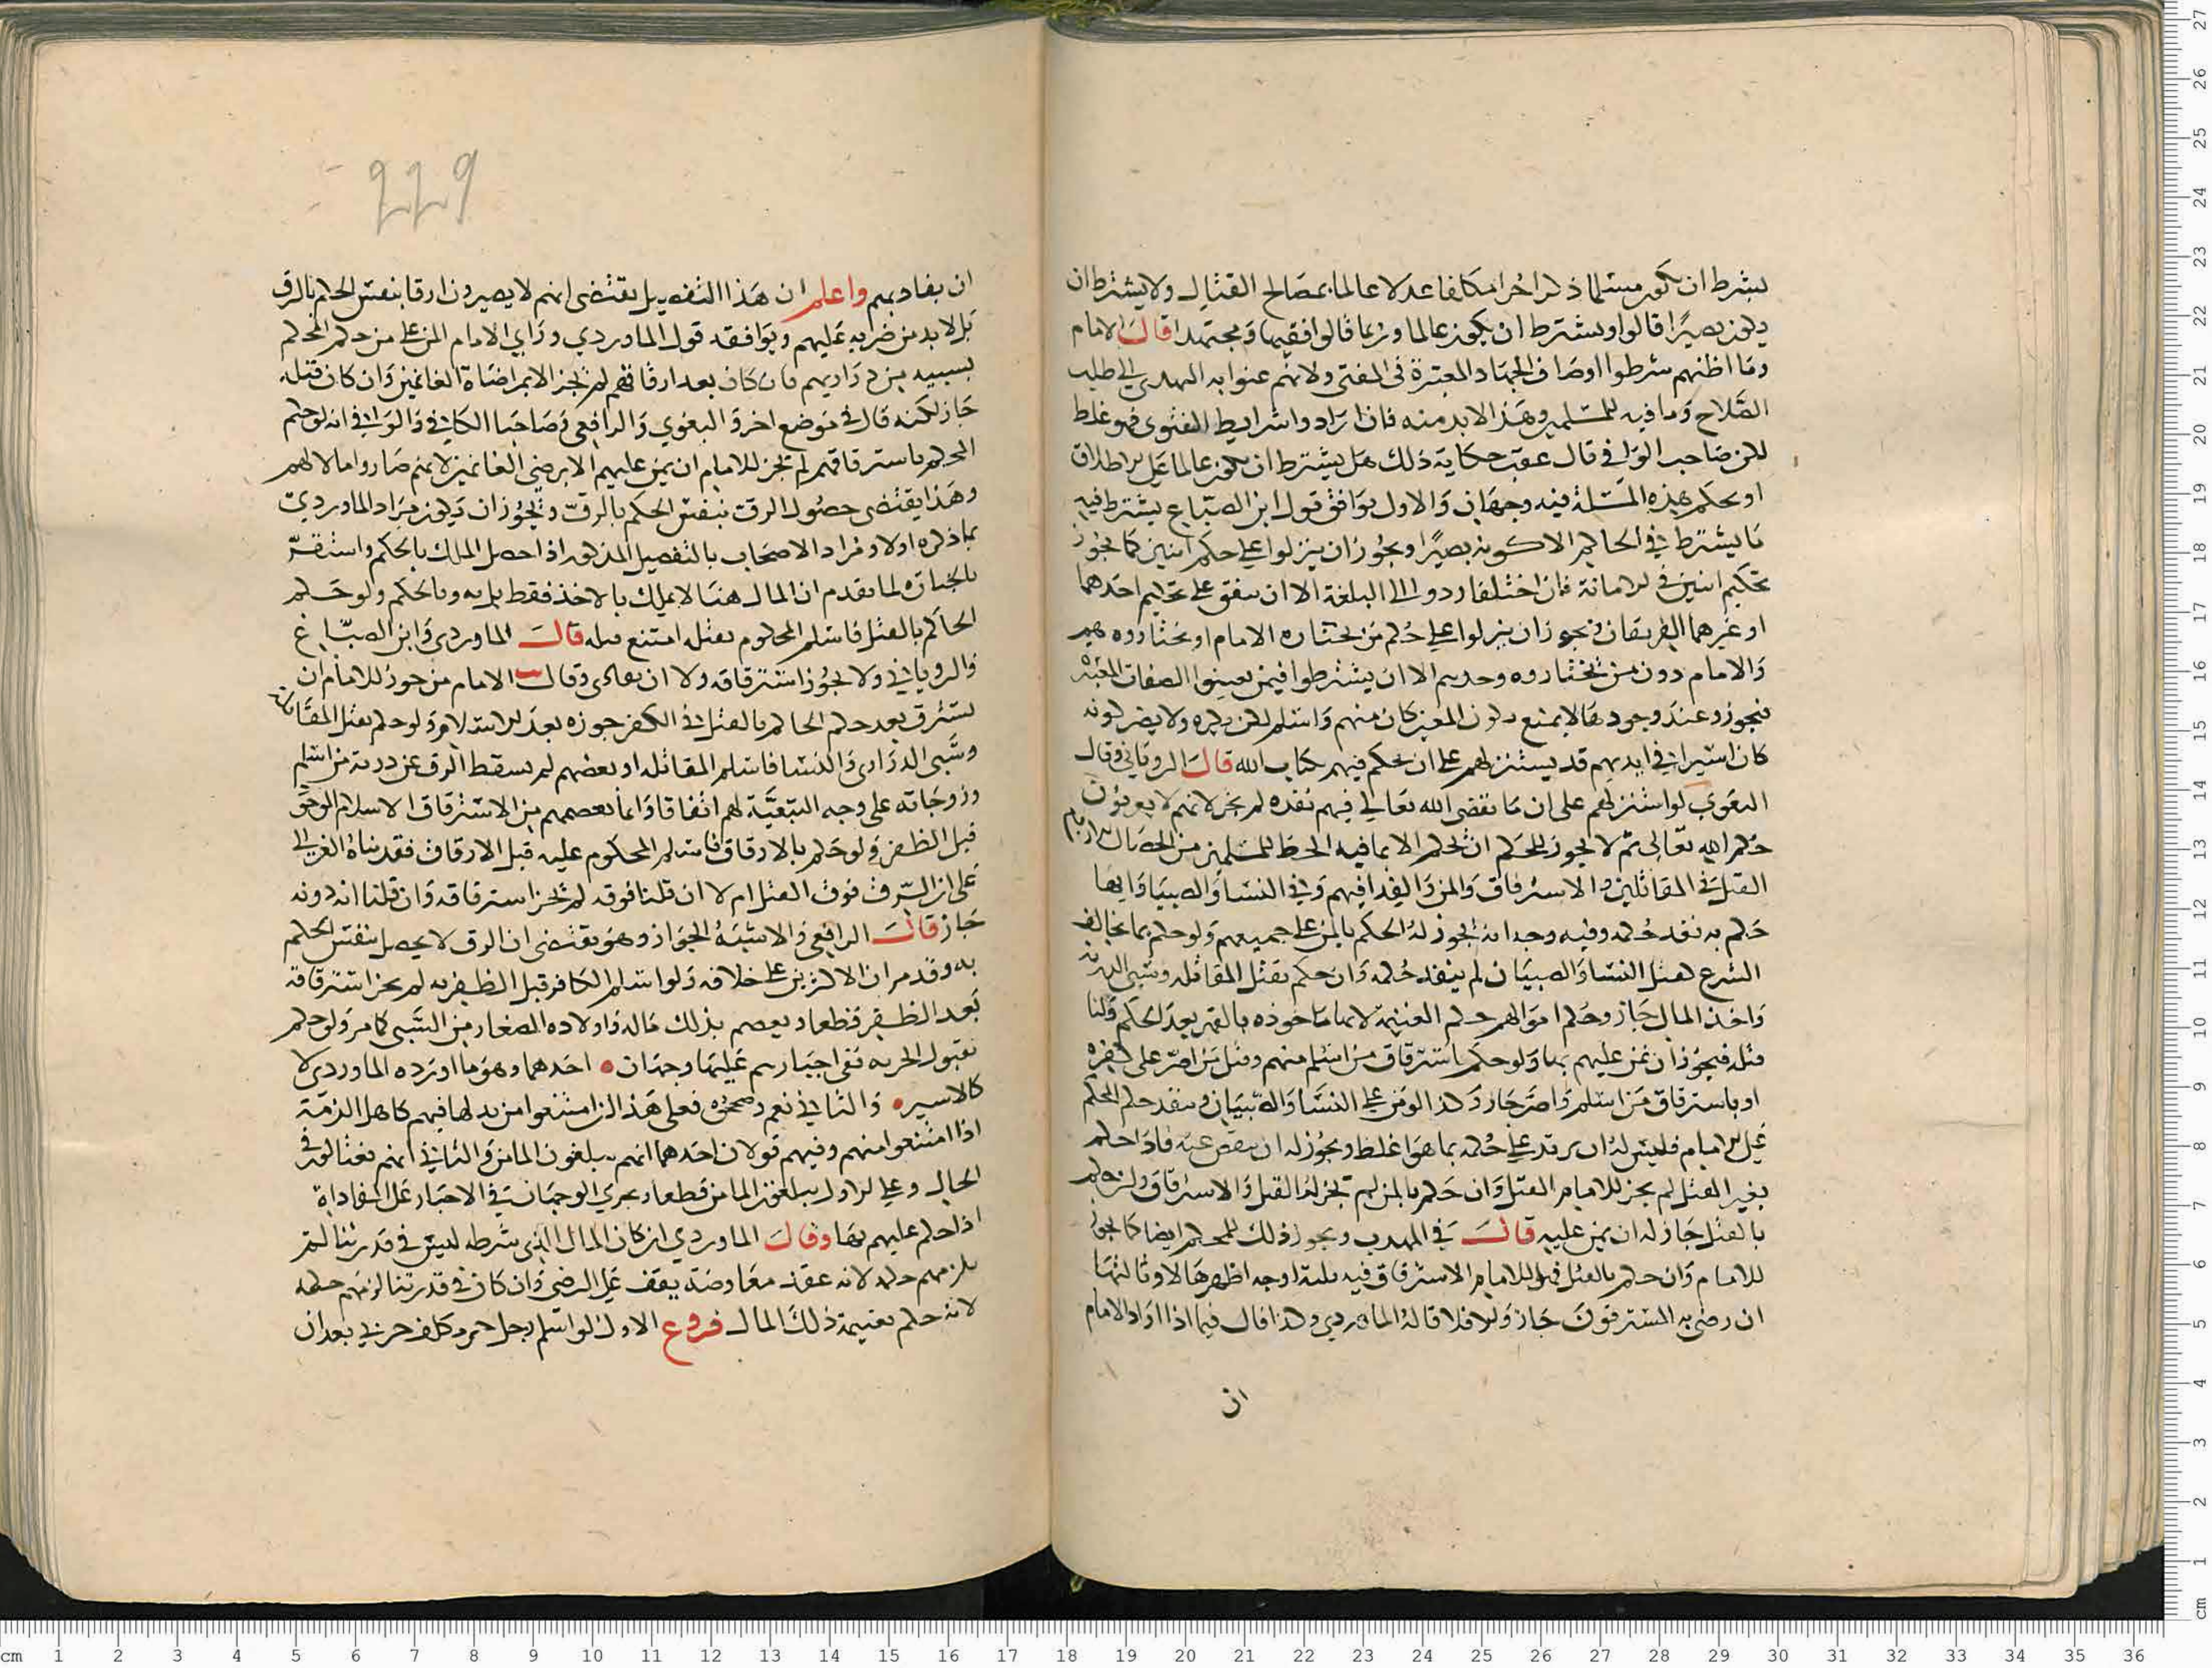 يشترط ان يكون مسلما ذكرا حرا مكلفا عدلا عالما بمصالح القتال ولا يشترط ان
يكون بصيرًا قالوا ويشترط ان يكون عالما وربما قالوا فقيها ومجتهدا قال الامام
وما اظنهم شرطوا اوصاف الاجتهاد المعتبرة في المفتي ولانهم عنوا به التهدي الى طلب
الصلاح وما فيه للمسلمين وهذا لابد منه فان ارادوا شرايط الفتوى فهو غلط
لكن صاحب الوافي قال عقب حكاية ذلك هل يشترط ان يكون عالما على الاطلاق
او بحكم هذه المسئلة فيه وجهان والاول يوافق قول ابن الصباغ يشترط فيه
ما يشترط في الحاكم الا كونه بصيرًا ويجوز ان ينزلوا على حكم اثنين كما يجوز
تحكيم اثنين في الامانة فان اختلفا ردوا الى البلغة الا ان يتفق على تحكيم احدهما
او غيرهما الفريقان ويجوز ان ينزلوا على حكم من يختاره الامام او يختاروه هم
والامام دون من يختاروه وحدهم الا ان يشترطوا فيمن يعينوا الصفات المعتبرة
فيجوز وعند وجودها لا يمتنع بكون المعين كان منهم واسلم لكن يكره ولا يضر كونه
كان اسيرا في ايديهم قد يستنزلهم على ان يحكم فيهم بكتاب الله قال الروياني وقال
البغوي لو استنزلهم على ان ما يقضي الله تعالى فيهم ينفذه لم يجز لانهم لا يعرفون
حكم الله تعالى ثم لا يجوز للحكم ان يحكم الا بما فيه الحظ للمسلمين من الخصال
القتل في المقاتلين والاسترقاق والمن والفدا فيهم وفي النسا والصبيان وايها
حكم به نفذ حكمه وفيه وجه انه لا يجوز له الحكم بالمن على جميعهم ولو حكم بما يخالف
الشرع كقتل النسا والصبيان لم ينفذ حكمه وان حكم بقتل المقاتلة وسبي الذرية
واخذ المال جاز وحكم اموالهم حكم الغنيمة لانها ماخوذه بالقهر بعد الحكم ولنا
مثله فيجوز ان يمن عليهم بها ولو حكم باسترقاق من اسلم منهم وقتل من اصر على كفره
او باسترقاق من اسلم واصر جاز وكذا لو من على النسا والصبيان وينفذ حكم المحكم
على الامام فليس له ان يزيد على حكمه بما هو اغلظ ويجوز له ان ينقص عنه فاذا حكم
بغير القتل لم يجز للامام القتل وان حكم بالمن لم يجز له القتل والاسترقاق وان حكم
بالقتل جاز له ان يمن عليه قال في المهذب ويجوز ذلك للمحكم ايضا كما يجوز
للامام وان حكم بالقتل فهل للامام الاسترقاق فيه ثلثة اوجه اظهرها لا وثالثها
ان رضي به المسترقون جاز والا فلا قاله الماوردي وكذا قال فيما اذا اراد الامام
ان
229
ان يفاديهم واعلم ان هذا التفصيل يقتضي انهم لا يصيرون ارقا بنفس الحكم بالرق
بل لا بد من ضربه عليهم ويوافقه قول الماوردي وراي الامام المن على من حكم المحكم
بسبيه من ذراريهم فان كان بعد ارقاقهم لم يجز الا بمراضاة الغانمين وان كان قبله
جاز لكنه قال في موضع اخر والبغوي والرافعي وصاحبا الكافي والوافي انه لو حكم
المحكم باسترقاقهم لم يجز للامام ان يمن عليهم الا برضى الغانمين لانهم صاروا مالا لهم
وهذا يقتضي حصول الرق بنفس الحكم بالرق ويجوز ان يكون مراد الماوردي
بما ذكره اولا ومراد الاصحاب بالتفصيل المذكور اذا حصل الملك بالحكم واستقر
بالحيازة لما تقدم ان المال هنا لا يملك بالاخذ فقط بل به وبالحكم ولو حكم
الحاكم بالقتل فاسلم المحكوم بقتله امتنع قتله قال الماوردي وابن الصباغ
والروياني ولا يجوز استرقاقه ولا ان يفادى وقال الامام من جوز للامام ان
يسترق بعد حكم الحاكم بالقتل في الكفر جوزه بعد الاسلام ولو حكم بقتل المقاتلة
وسبي الذراري والنسا فاسلم المقاتلة او بعضهم لم يسقط الرق عن ذرية من اسلم
وزوجاته على وجه التبعية لهم اتفاقا وانما يعصمهم من الاسترقاق الاسلام لو حق
قبل الظفر ولو حكم بالارقاق فاسلم المحكوم عليه قبل الارقاق فقد بناه الغزالي
على ان الرق فوق القتل ام لا ان قلنا فوقه لم يجز استرقاقه وان قلنا انه دونه
جاز قال الرافعي والاشبه الجواز وهو يقتضي ان الرق لا يحصل بنفس الحكم
به وقد مر ان الاكثرين على خلافه ولو اسلم الكافر قبل الظفر به لم يجز استرقاقه
بعد الظفر قطعا ويعصم بذلك ماله واولاده الصغار من السبي كما مر ولو حكم
بقبول الجزية ففي اجبارهم عليها وجهان احدهما وهو ما اورده الماوردي لا
كالاسير والثاني نعم وصححوه فعلى هذا ان امتنعوا من بذلها فهم كاهل الذمة
اذا امتنعوا منهم وفيهم قولان احدهما انهم يبلغون المامن والثاني انهم يغتالون في
الحال وعلى الاول يبلغون المامن قطعا ويجري الوجهان في الاجبار على المفاداة
اذا حكم عليهم بها وقال الماوردي ان كان المال الذي شرطه ليس في قدرتنا لم
يلزمهم حكمه لانه عقد معاوضة يقف على الرضى وان كان في قدرتنا لزمهم حكمه
لانه حكم بغنيمة ذلك المال فروع الاول لو اسلم رجل حر مكلف حربي بعد ان